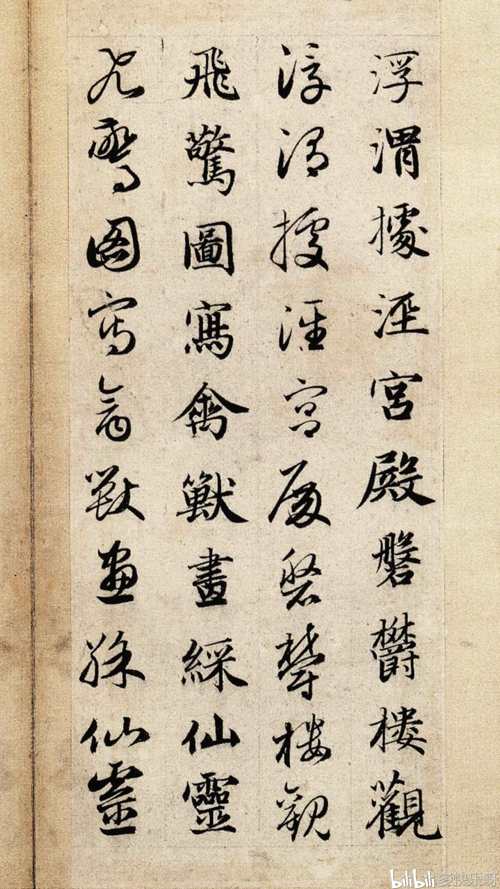 浮渭據涇宮殿磐欝樓觀
浮渭據涇宮殿磐欝樓觀
飛驚圖寫禽獸畫綵仙靈
飛驚圖寫禽獸畫綵仙靈
bilibili